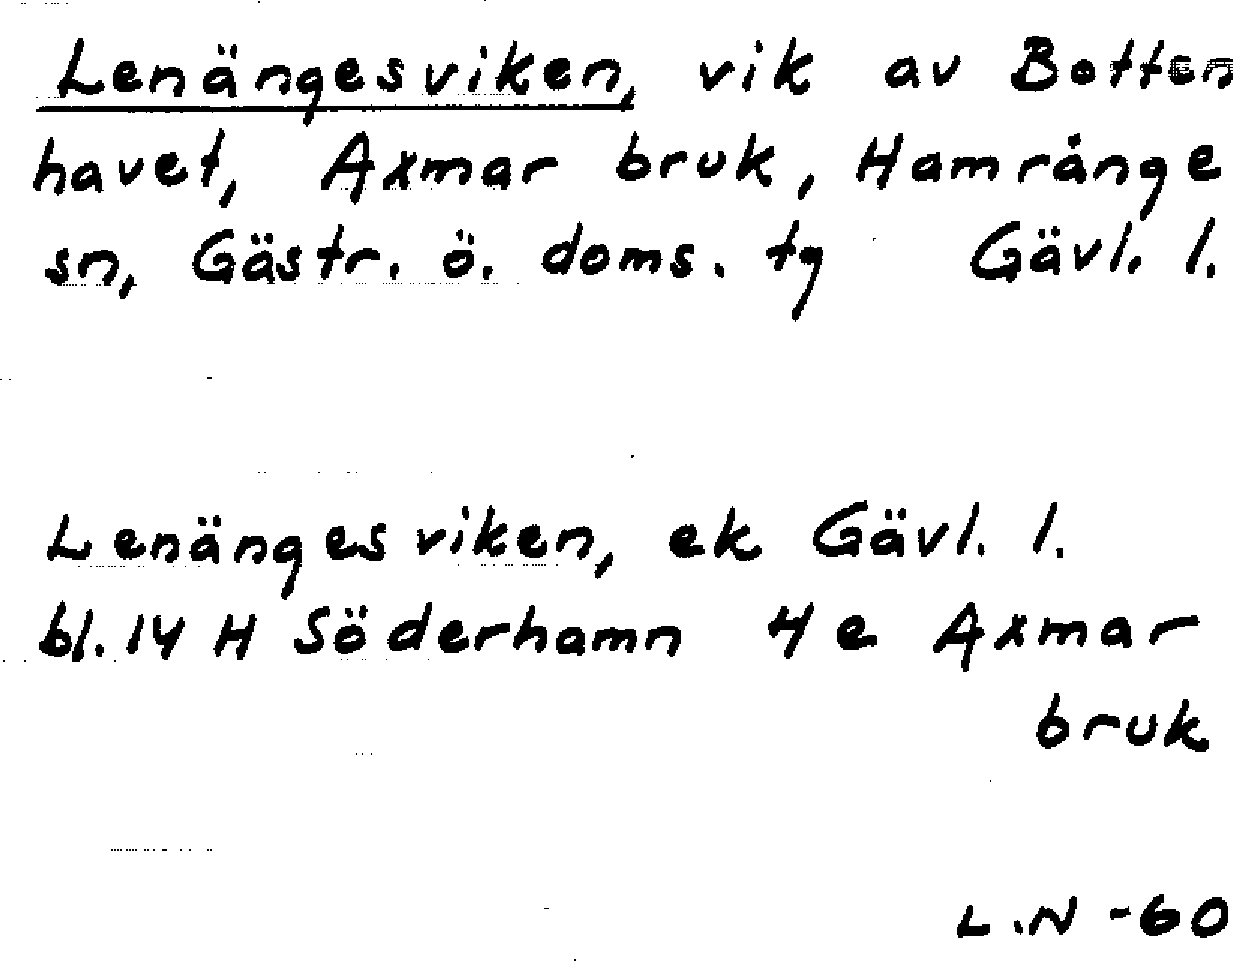 Lenängesviken, vik av Botten
havet, Axmar bruk, Hamrånge
sn, Gästr. ö. doms. tg Gävl. l.
Lenängesviken, ek Gävl. l.
bl. 14 H Söderhamn 4 e Axmar
bruk
L.N -60